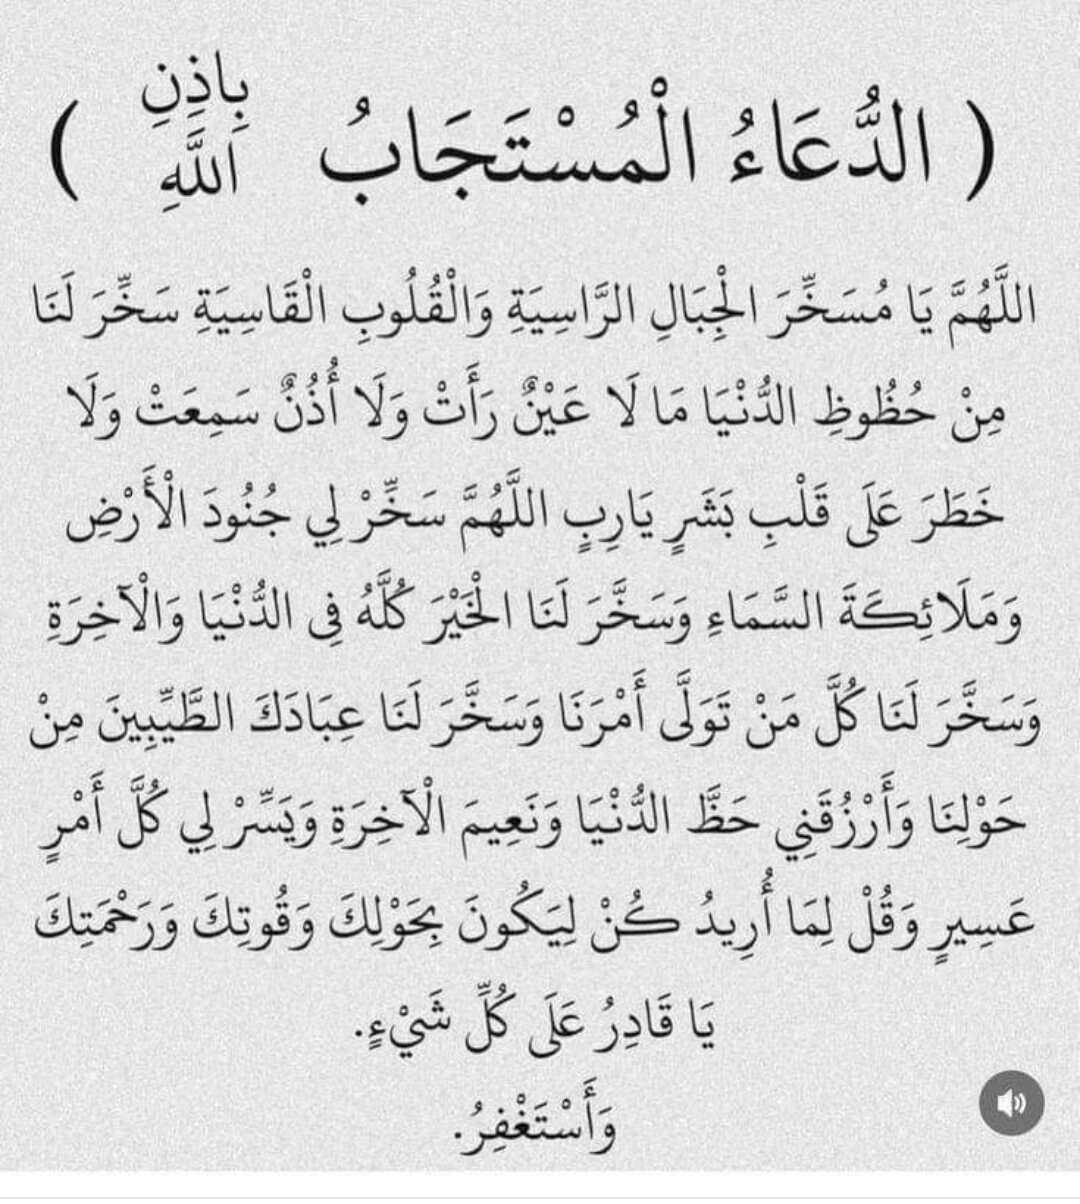 ( الدُّعَاءُ الْمُسْتَجَابُ بِاذِنِ اللَّهِ )
اللَّهُمَّ يَا مُسَخِّرَ الْجِبَالِ الرَّاسِيَةِ وَالْقُلُوبِ الْقَاسِيَةِ سَخِّرَ لَنَا
مِنْ حُظُوظِ الدُّنْيَا مَا لَا عَيْنٌ رَأَتْ وَلَا أُذُنٌ سَمِعَتْ وَلَا
خَطَرَ عَلَى قَلْبِ بَشَرٍ يَارِبٍ اللَّهُمَّ سَخِّرْ لِي جُنُودَ الْأَرْضِ
وَمَلَائِكَةَ السَّمَاءِ وَسَخَّرَ لَنَا الْخَيْرَ كُلَّهُ فِى الدُّنْيَا وَالْآخِرَةِ
وَسَخَّرَ لَنَا كُلَّ مَنْ تَوَلَّى أَمْرَنَا وَسَخَّرَ لَنَا عِبَادَكَ الطَّيِّبِينَ مِنْ
حَوْلِنَا وَأَرْزُقَنِي حَظَّ الدُّنْيَا وَنَعِيمَ الْآخِرَةِ وَيَسِّرْ لِي كُلَّ أَمْرٍ
عَسِيرٍ وَقُلْ لِمَا أُرِيدُ كُنْ لِيَكُونَ بِحَوْلِكَ وَقُوتِكَ وَرَحْمَتِكَ
يَا قَادِرُ عَلَى كُلِّ شَيْءٍ.
وَأَسْتَغْفِرُ.